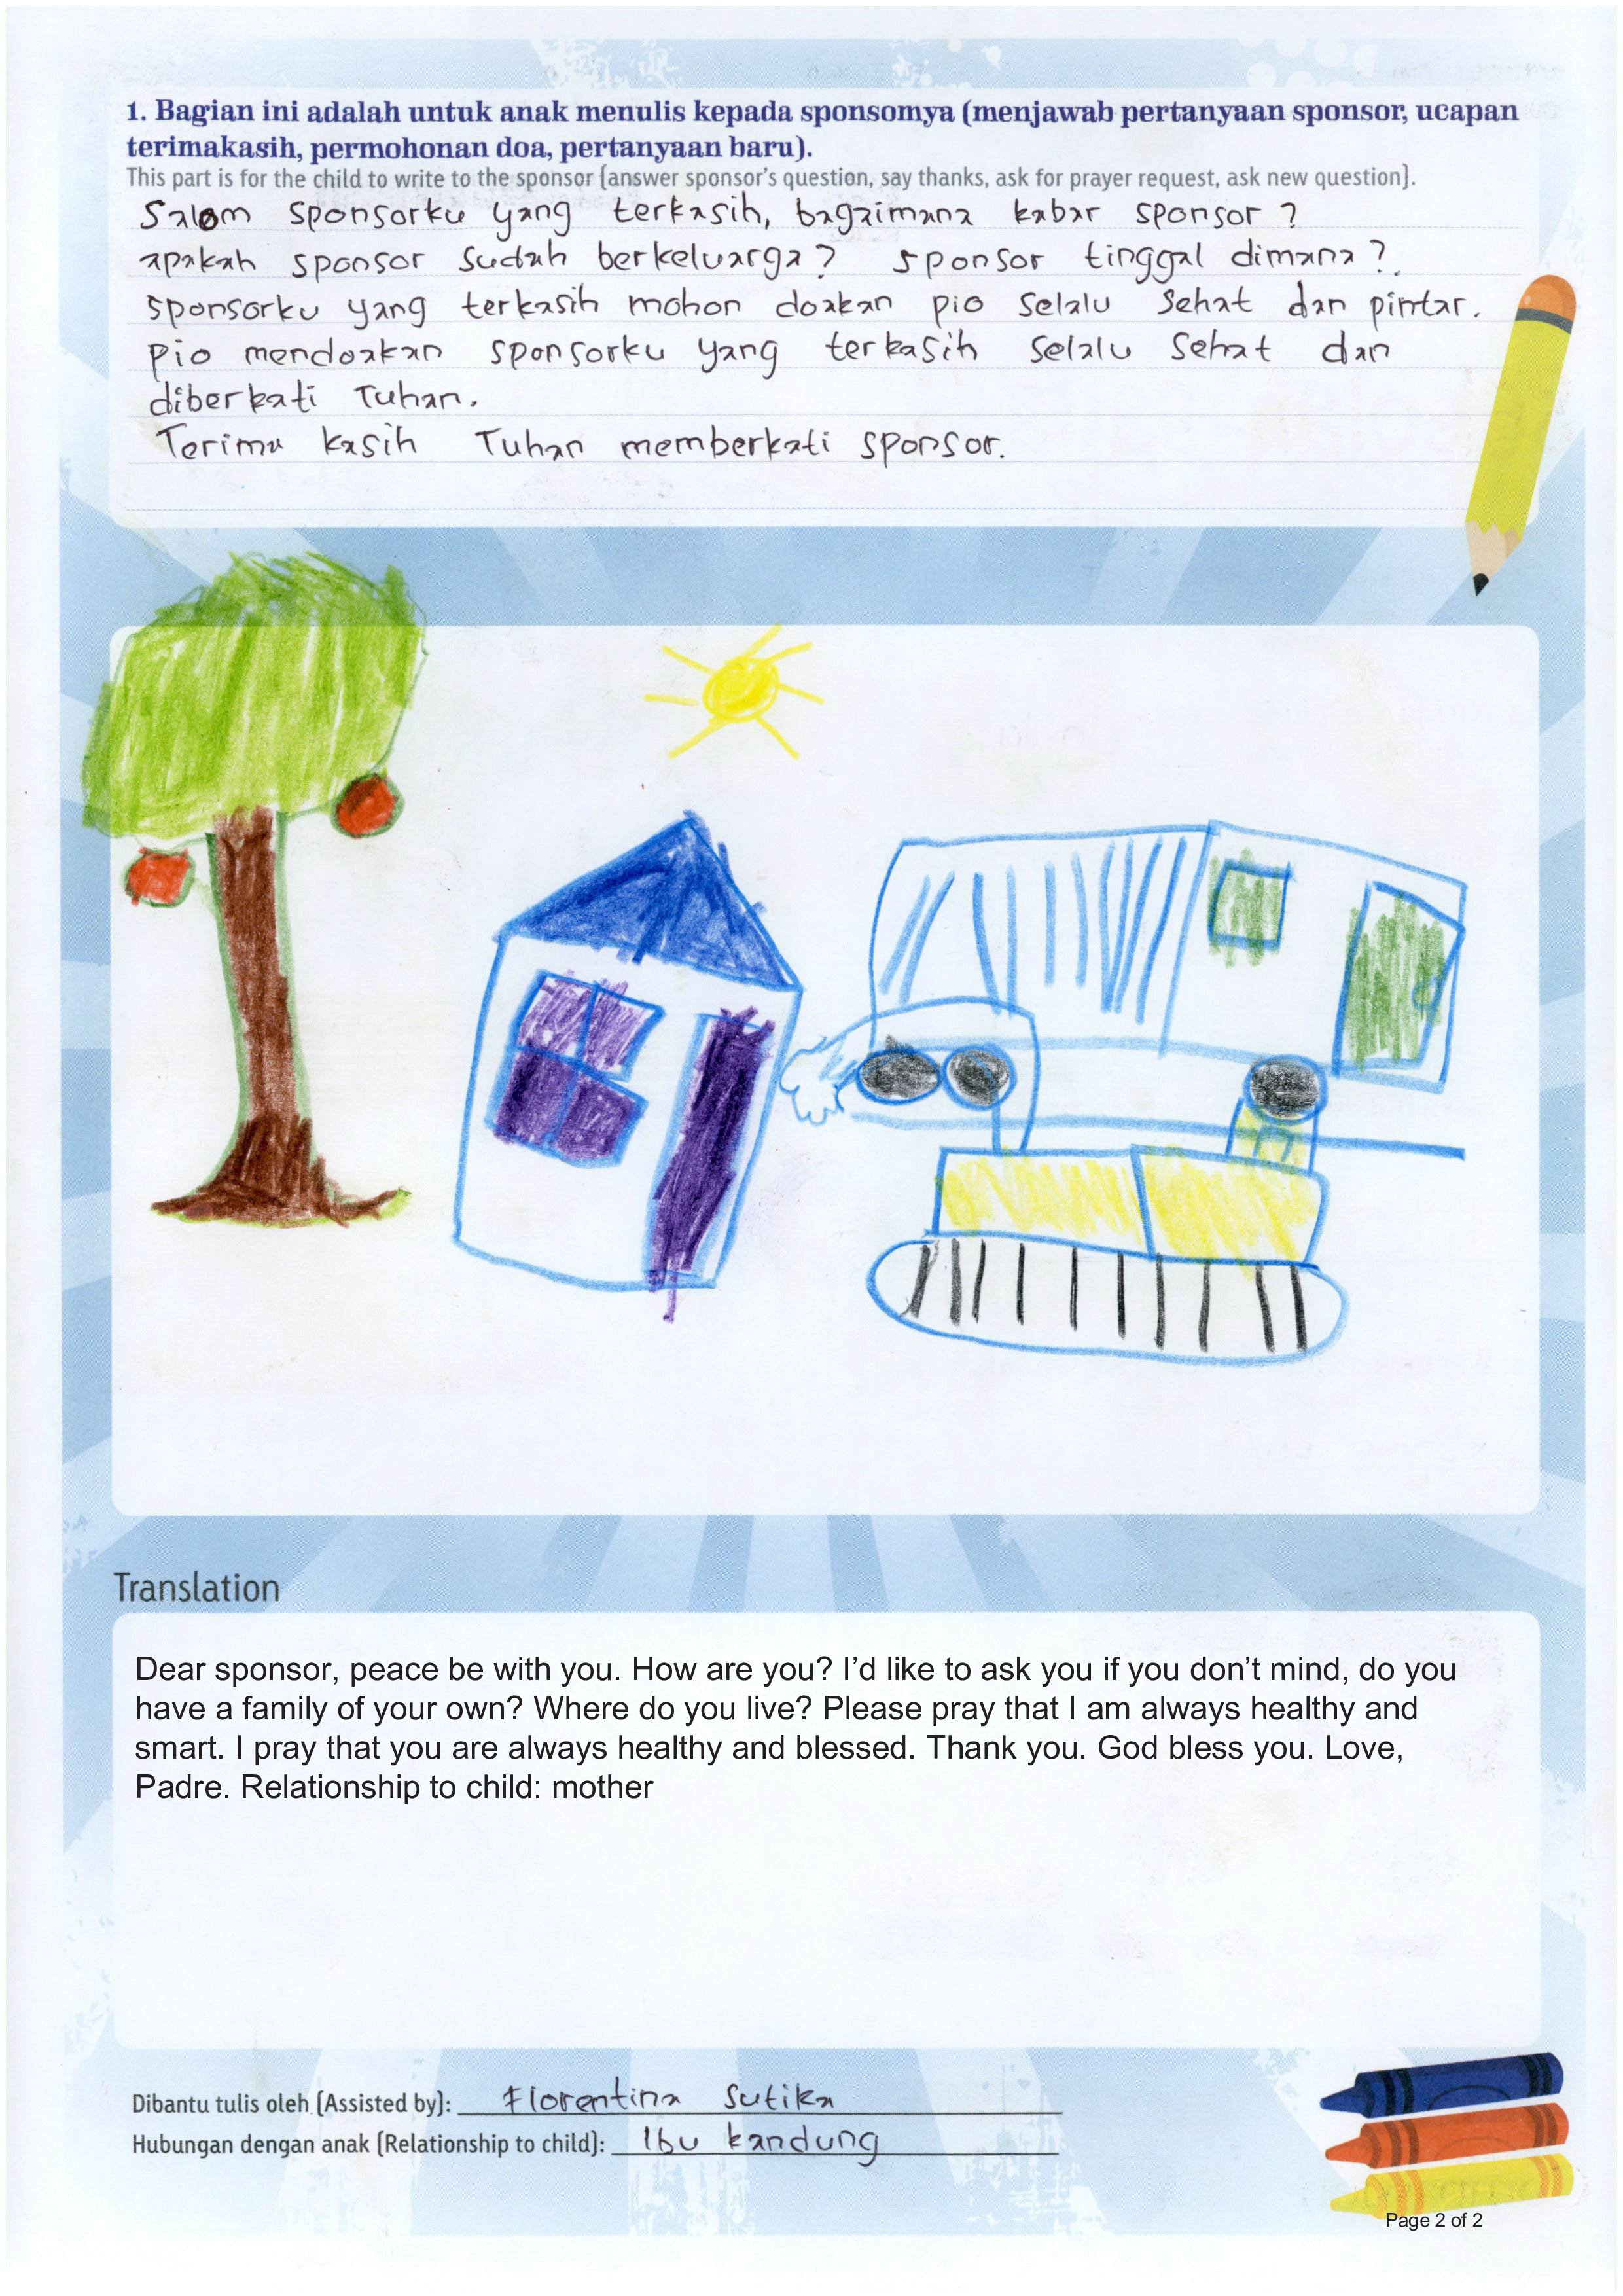 1. Bagian ini adalah untuk anak menulis kepada sponsomya (menjawab pertanyaan sponsor, ucapan
terimakasih, permohonan doa, pertanyaan baru).
This part is for the child to write to the sponsor (answer sponsor's question, say thanks, ask for prayer request, ask new question).
Salom sponsorku yang terkasih, bagaimana kabar sponsor ?
apakah sponsor sudah berkeluarga ? sponsor tinggal dimana ?
sponsorku yang terkasih mohon doakan pio selalu sehat dan pintar.
pio mendoakan sponsorku yang terkasih selalu sehat dan
diberkati Tuhan.
Terima kasih Tuhan memberkati sponsor.
Translation
Dear sponsor, peace be with you. How are you? I'd like to ask you if you don't mind, do you
have a family of your own? Where do you live? Please pray that I am always healthy and
smart. I pray that you are always healthy and blessed. Thank you. God bless you. Love,
Padre. Relationship to child: mother
Dibantu tulis oleh (Assisted by): Florentina Sutika
Hubungan dengan anak (Relationship to child): Ibu kandung
Page 2 of 2